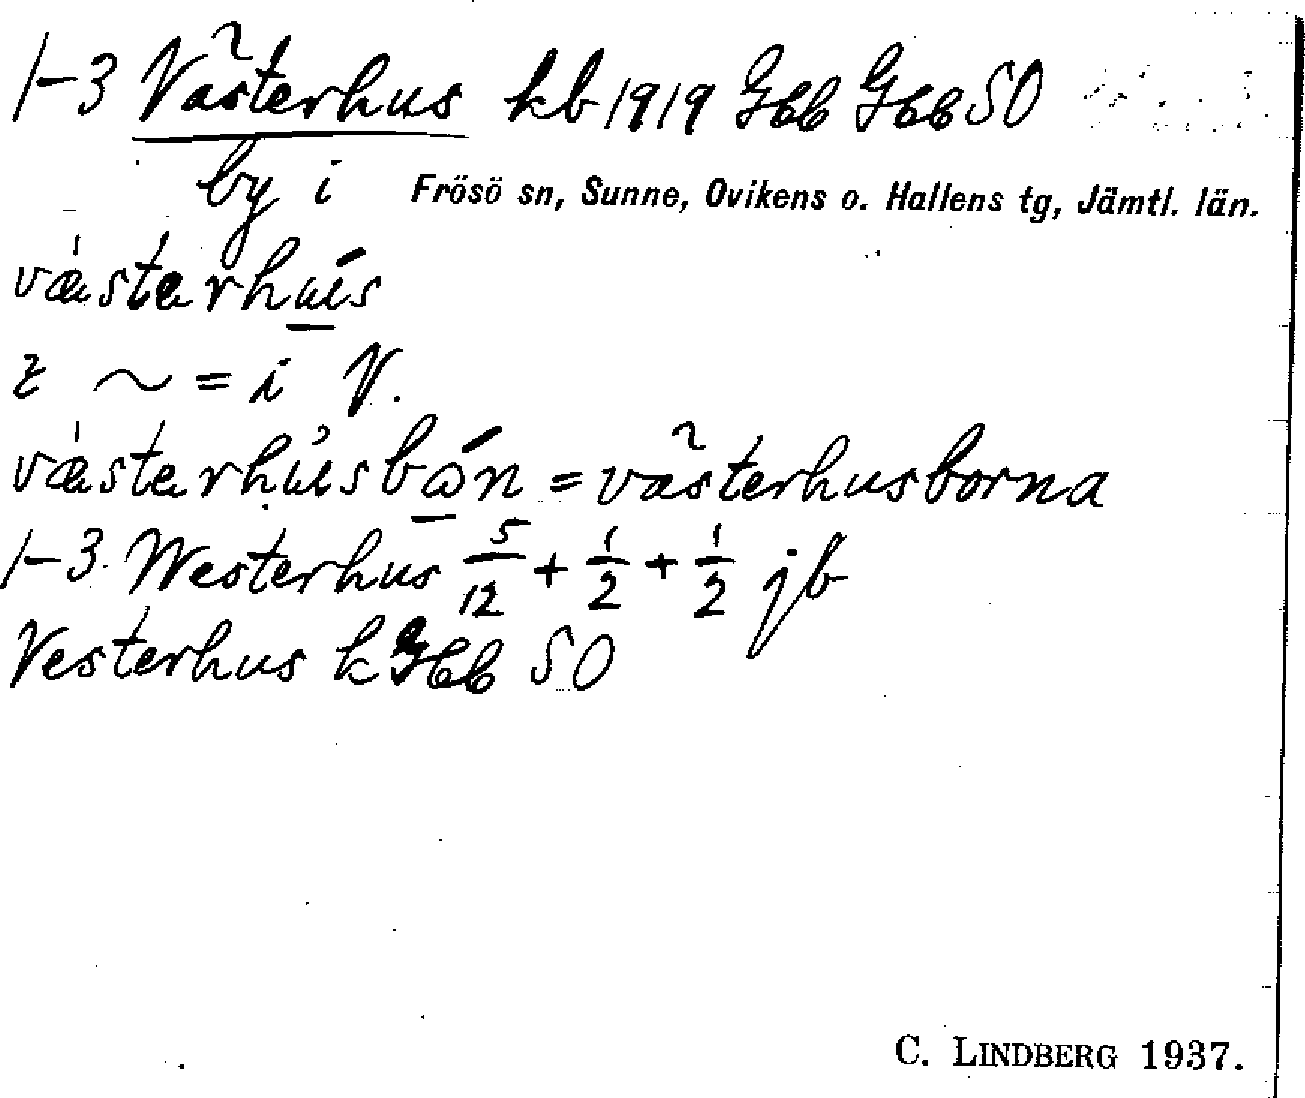 1-3 Västerhus kb 1919 Gbb Gbb SO
by i Frösö sn, Sunne, Ovikens o. Hallens tg, Jämtl. län.
væ̀starhu̲ ́s
ż ~ = i V.
væ̀starhu̇sbώ̲n = västerhusborna
1-3 Westerhus 5/12 + 1/2 + 1/2 jb
Vesterhus k Gbb SO
C. LINDBERG 1937.